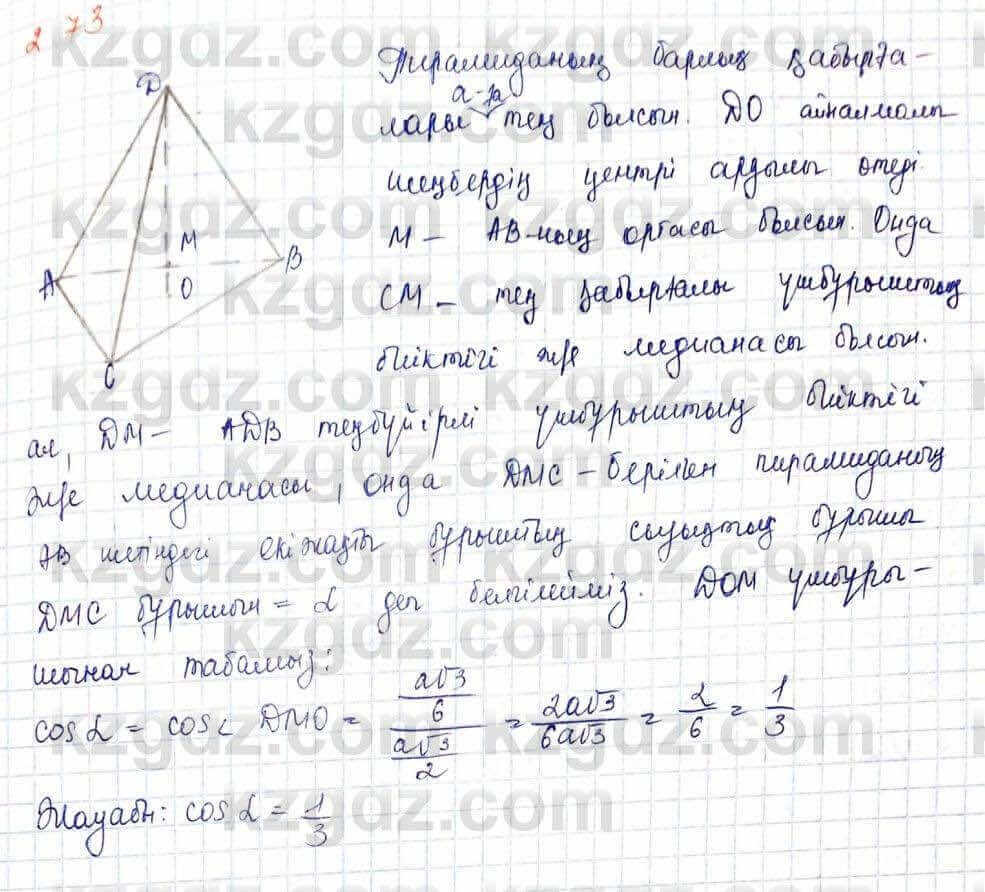 2 73
Пирамиданың барлық қабырға-
а-ға
лары тең болсын. DO айналмалы
шеңбердің центрі арқылы өтеді.
M - AB-ның ортасы болсын. Онда
CM - тең қабырғалы үшбұрыштың
биіктігі әрі медианасы болсын.
ал, DM - ADB теңбүйірлі үшбұрыштың биіктігі
әрі медианасы, онда DMC - берілген пирамиданың
AB шетіндегі екіжақты бұрыштың сызықтық бұрышы
DMC бұрышын = α деп белгілейміз. DOM үшбұры-
шынан табамыз:
cos α = cos < DMO = (a√3/6)/(a√3/2) = 2a√3/6a√3 = 2/6 = 1/3
Жауабы: cos α = 1/3
D
M
A
B
O
C
kzgdz.com